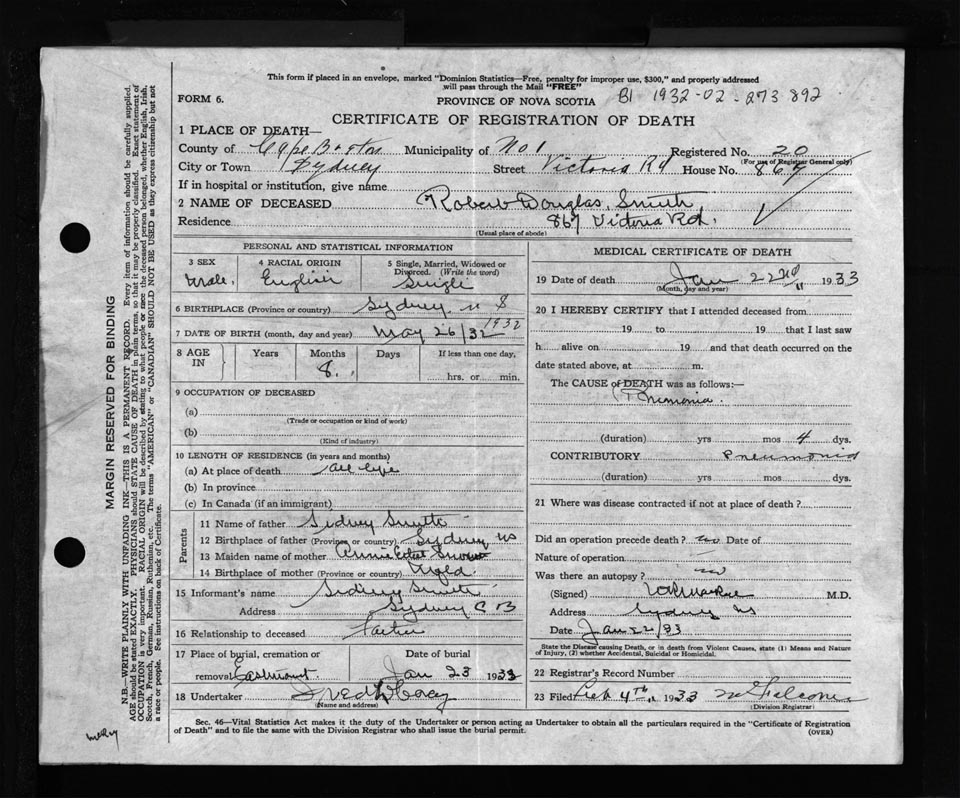 This form if placed in an envelope, marked "Dominion Statistics—Free, penalty for improper use, $300," and properly addressed
will pass through the Mail "FREE"
FORM 6.
PROVINCE OF NOVA SCOTIA
B1 1932-02-273892
CERTIFICATE OF REGISTRATION OF DEATH
1 PLACE OF DEATH—
County of Cape Breton Municipality of No 1 Registered No. 20
(For use of Registrar General only)
City or Town Sydney Street Victoria Rd House No. 867
If in hospital or institution, give name
2 NAME OF DECEASED Robert Douglas Smith
Residence 867 Victoria Rd.
(Usual place of abode)
PERSONAL AND STATISTICAL INFORMATION
3 SEX 4 RACIAL ORIGIN 5 Single, Married, Widowed or Divorced. (Write the word)
Male. English Single
6 BIRTHPLACE (Province or country) Sydney N S
7 DATE OF BIRTH (month, day and year) May 26/32 1932
8 AGE IN Years Months Days If less than one day,
8. hrs. or min.
9 OCCUPATION OF DECEASED
(a)
(Trade or occupation or kind of work)
(b)
(Kind of industry)
10 LENGTH OF RESIDENCE (in years and months)
(a) At place of death all life
(b) In province
(c) In Canada (if an immigrant)
Parents
11 Name of father Sidney Smith
12 Birthplace of father (Province or country) Sydney NS
13 Maiden name of mother Annie
14 Birthplace of mother (Province or country) Nfld.
15 Informant's name Sidney Smith
Address Sydney C B
16 Relationship to deceased Father
17 Place of burial, cremation or removal Eastmount Date of burial Jan 23 1933
18 Undertaker
(Name and address)
MEDICAL CERTIFICATE OF DEATH
19 Date of death Jan 22nd 1933
(Month, day and year)
20 I HEREBY CERTIFY that I attended deceased from
19 to 19 that I last saw
h alive on 19 and that death occurred on the
date stated above, at m.
The CAUSE of DEATH was as follows:—
Pneumonia.
(duration) yrs mos 4 dys.
CONTRIBUTORY Pneumonia
(duration) yrs mos dys.
21 Where was disease contracted if not at place of death?
Did an operation precede death? no Date of
Nature of operation
Was there an autopsy? no
(Signed) M.D.
Address Sydney NS
Date Jan 22/33
State the Disease causing Death, or in death from Violent Causes, state (1) Means and Nature
of Injury, (2) whether Accidental, Suicidal or Homicidal.
22 Registrar's Record Number
23 Filed Feb 4th 1933
(Division Registrar)
Sec. 46—Vital Statistics Act makes it the duty of the Undertaker or person acting as Undertaker to obtain all the particulars required in the "Certificate of Registration
of Death" and to file the same with the Division Registrar who shall issue the burial permit. (OVER)
MARGIN RESERVED FOR BINDING
N.B.—WRITE PLAINLY WITH UNFADING INK—THIS IS A PERMANENT RECORD. Every item of information should be carefully supplied.
AGE should be stated EXACTLY. PHYSICIANS should STATE CAUSE OF DEATH in plain terms, so that it may be properly classified. Exact statement of
OCCUPATION is very important. RACIAL ORIGIN will be described by stating to what people or race the deceased person belonged, whether English, Irish,
Scotch, French, German, Russian, Ruthenian, etc. The terms "AMERICAN" or "CANADIAN" SHOULD NOT BE USED as they express citizenship but not
a race or people. See instructions on back of Certificate.